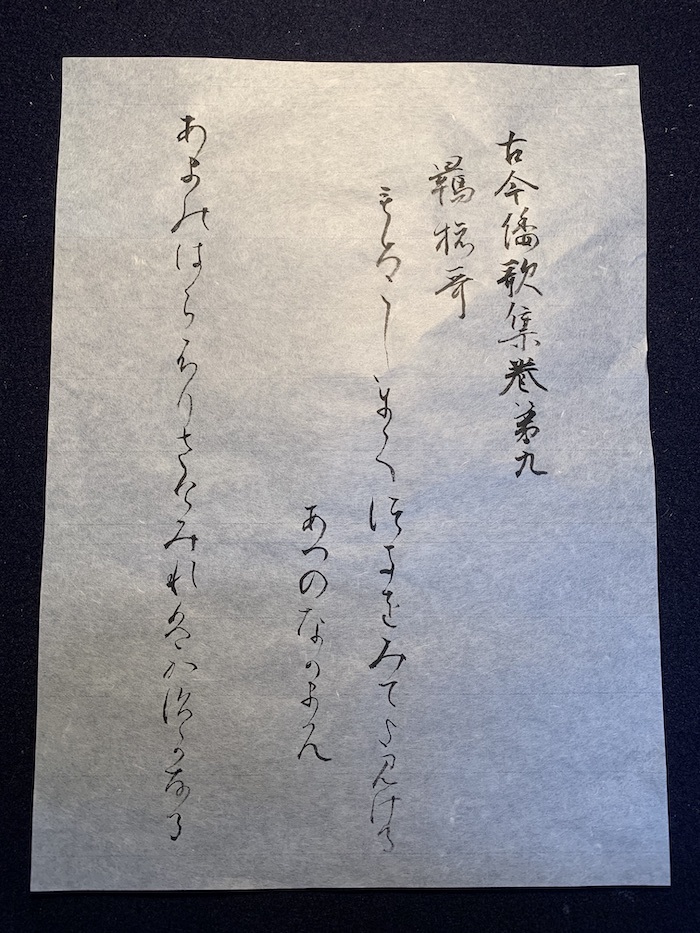 古今倭歌集巻第九
羇旅哥
もろこしにてつきをみてよみける
あへのなかまろ
あまのはらふりさけみれはかすかなる